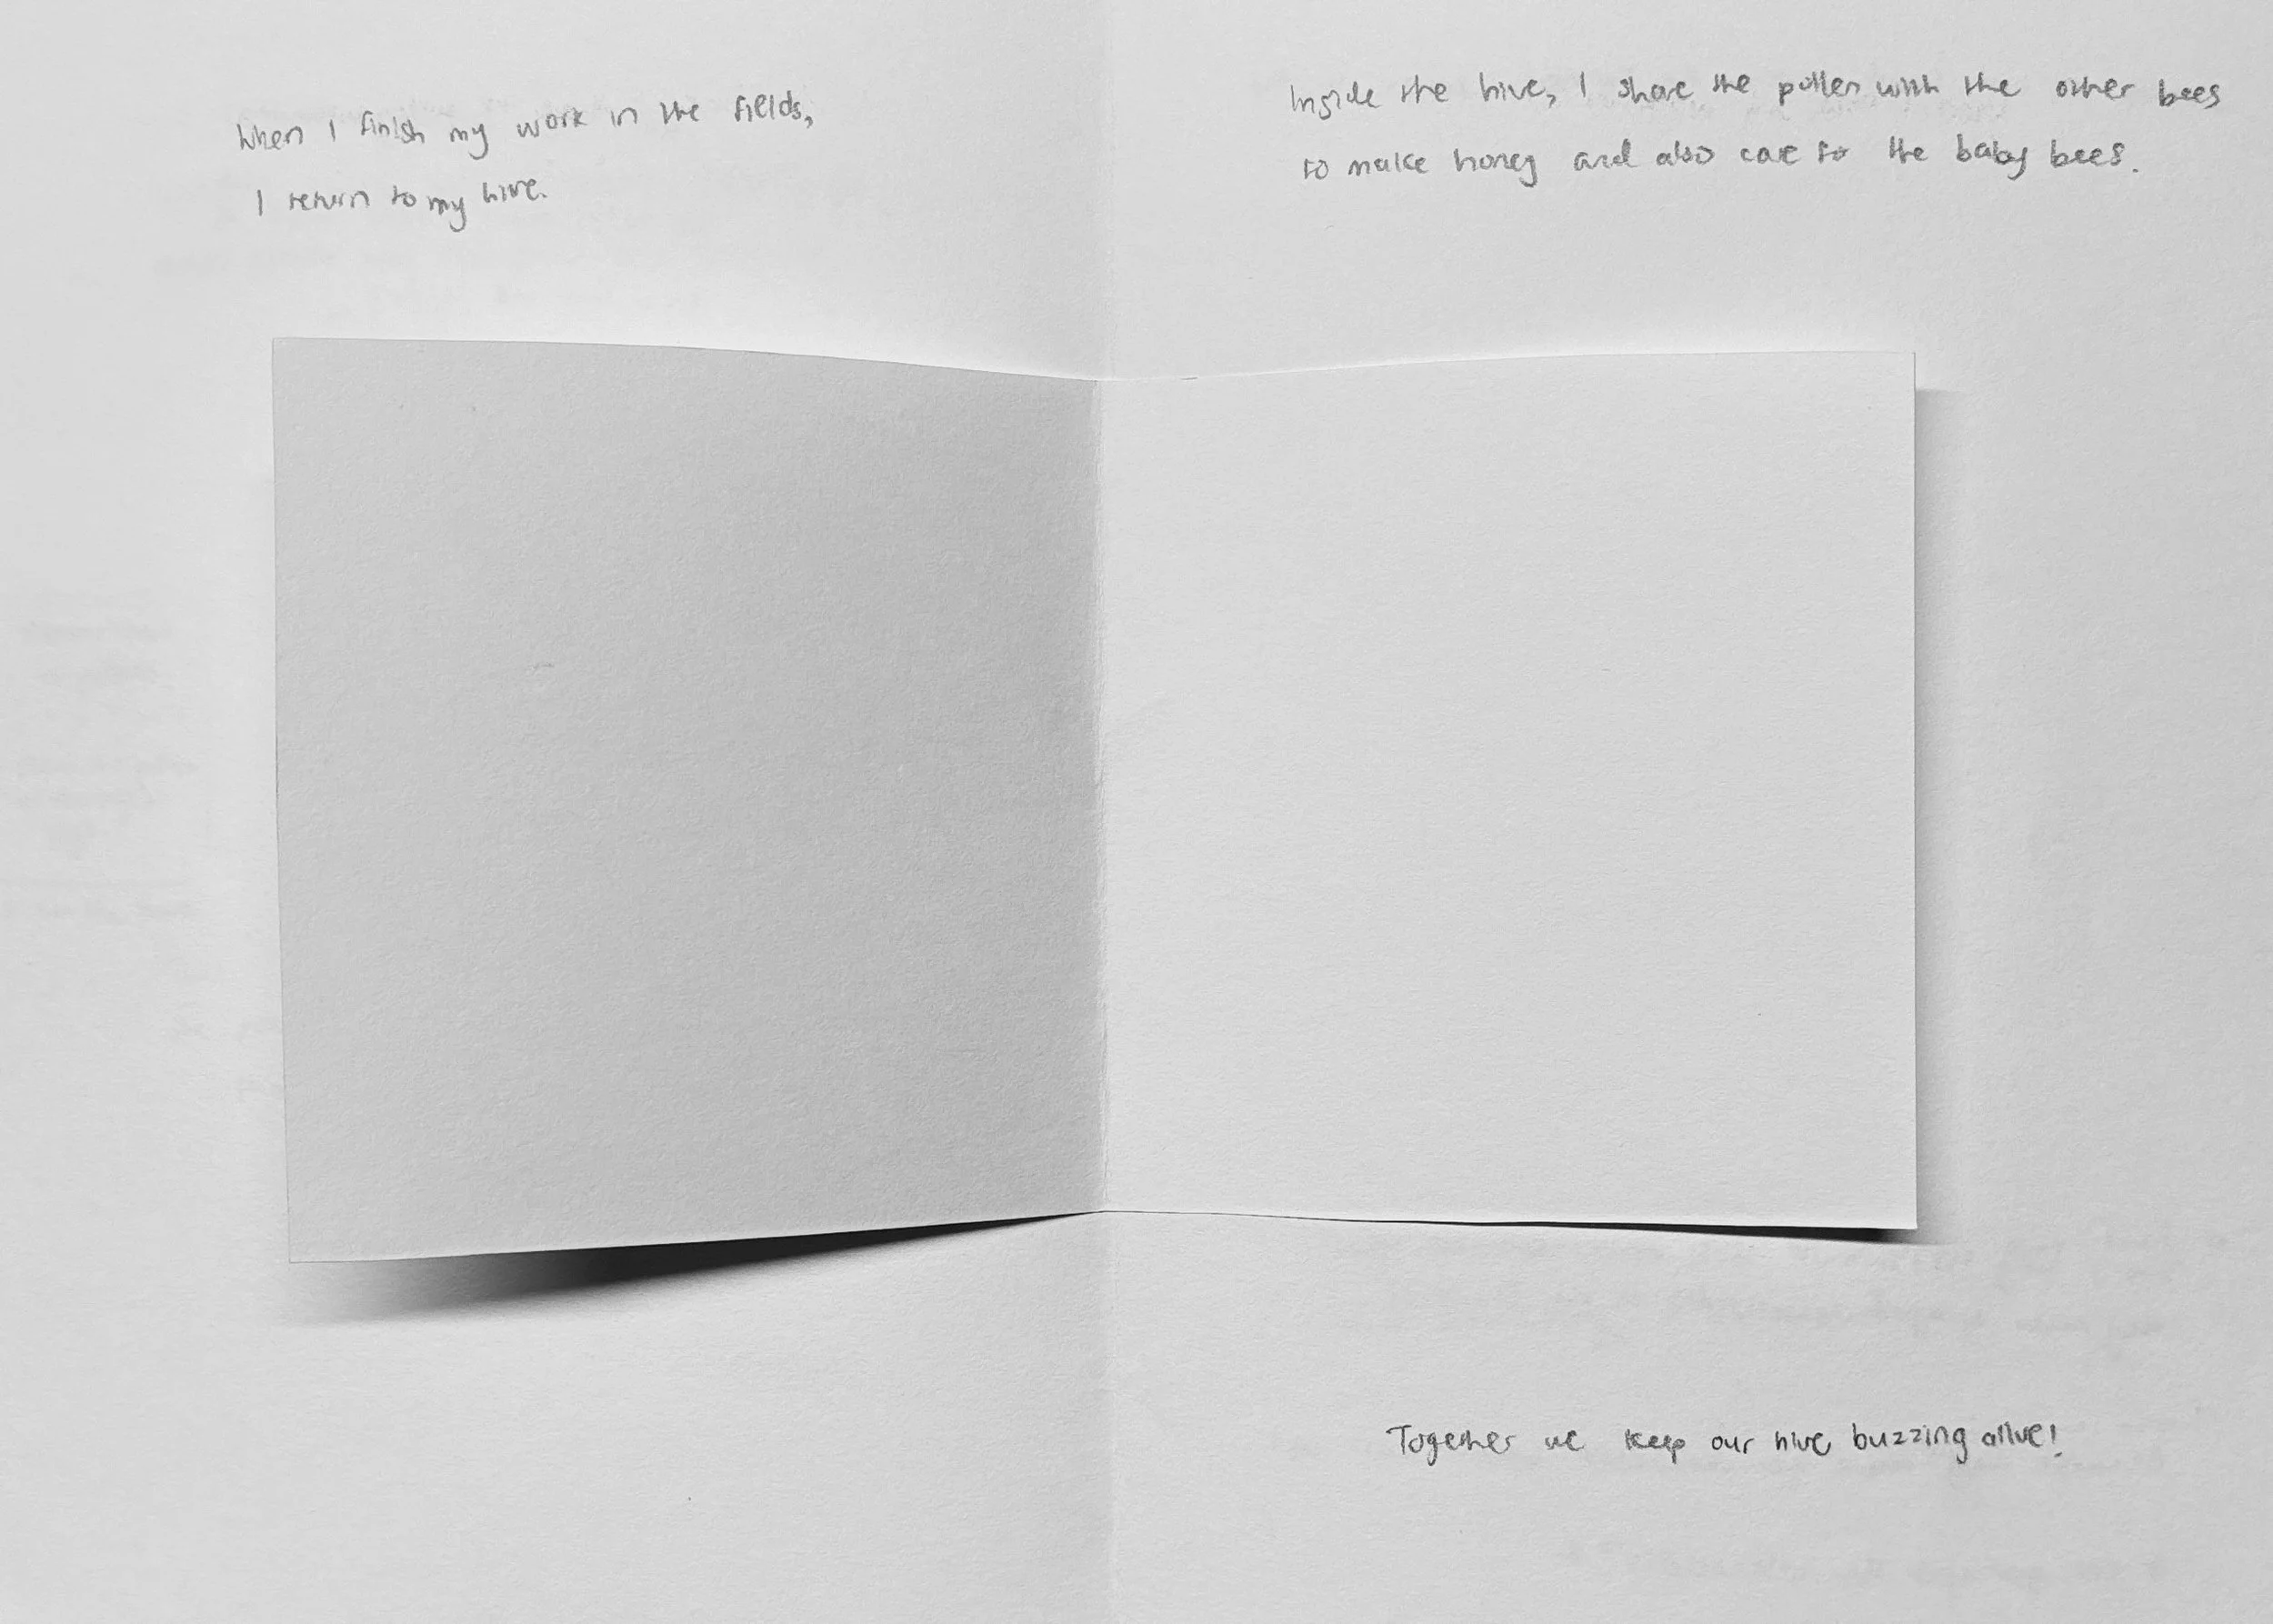 When I finish my work in the fields,
I return to my hive.
Inside the hive, I share the pollen with the other bees
to make honey and also care for the baby bees.
Together we keep our hive buzzing alive!